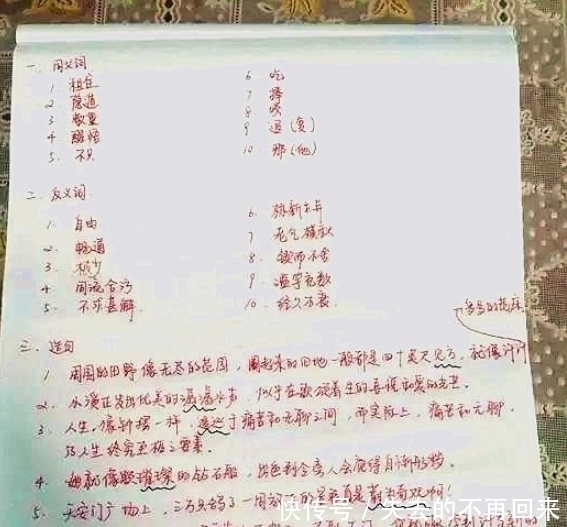 一、同义词
1 租住
2. 隧道
3 数量
4 醒悟
5. 不只
6. 吃
7 择
8 咬
9 迟 (复)
10 那 (他)
二、反义词
1. 自由
2. 畅通
3. 极少
4 同流合污
5 不求甚解
6. 标新立异
7 老气横秋
8. 锲而不舍
9 滥竽充数
10. 经久不衰
三、造句
多姿的花床
1. 周围的田野像无尽的花园,圈起来的田地一般都是四十英尺见方,就像许许
2. 水滴正发出优美的漏滴水声,似乎在歌颂着生的喜悦和爱的光芒。
3. 人生像钟摆一样,逡巡于痛苦和无聊之间,而实际上,痛苦和无聊,
乃人生终究至极之要素。
4 她就像璀璨的钻石般,出色到令旁人会觉得自惭形秽。
5. 天安门广场上,
快传号 / 失去的不再回来